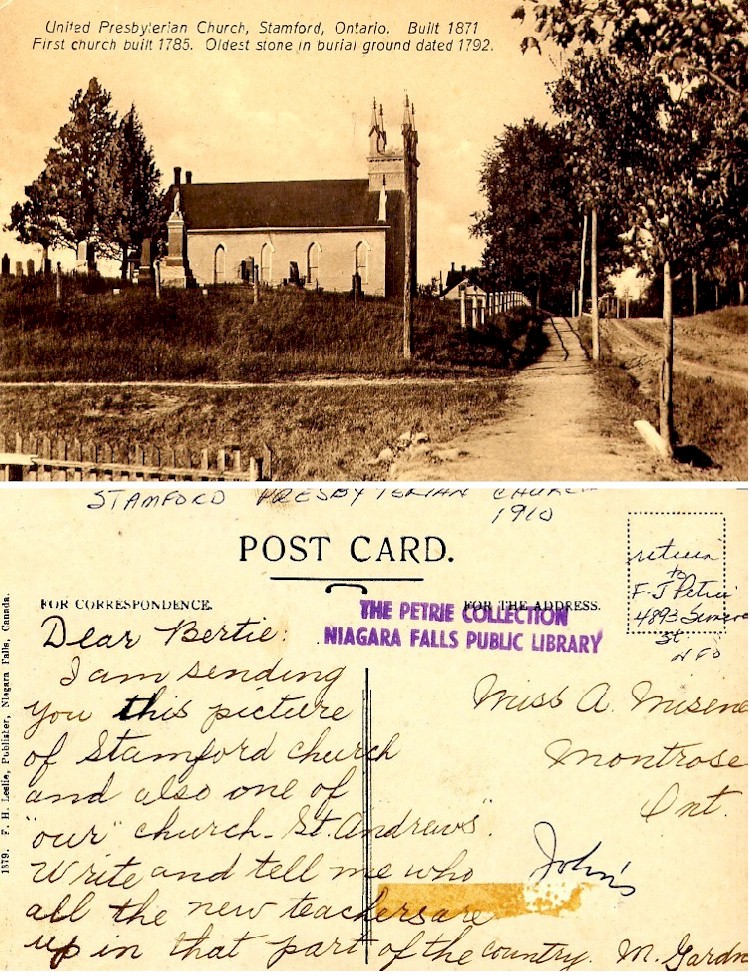 United Presbyterian Church, Stamford, Ontario. Built 1871
First church built 1785. Oldest stone in burial ground dated 1792.
STAMFORD PRESBYTERIAN CHURCH
1910
POST CARD.
return
to
F J Petrie
4893
St
N F O
FOR CORRESPONDENCE.
FOR THE ADDRESS.
THE PETRIE COLLECTION
NIAGARA FALLS PUBLIC LIBRARY
Dear Bertie:
I am sending
you this picture
of Stamford church
and also one of
"our" church - St. Andrews".
Write and tell me who
all the new teachers are
up in that part of the country. M. Gardn
Miss A. Misene
Montrose
Ont.
John's
1379. F. H. Leslie, Publisher, Niagara Falls, Canada.